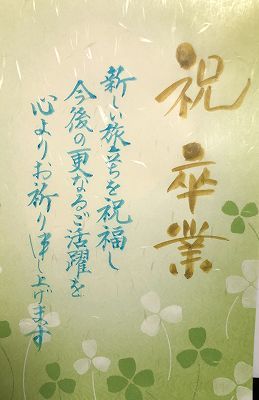 祝卒業
新しい旅立ちを祝福し
今後の更なるご活躍を
心よりお祈り申し上げます